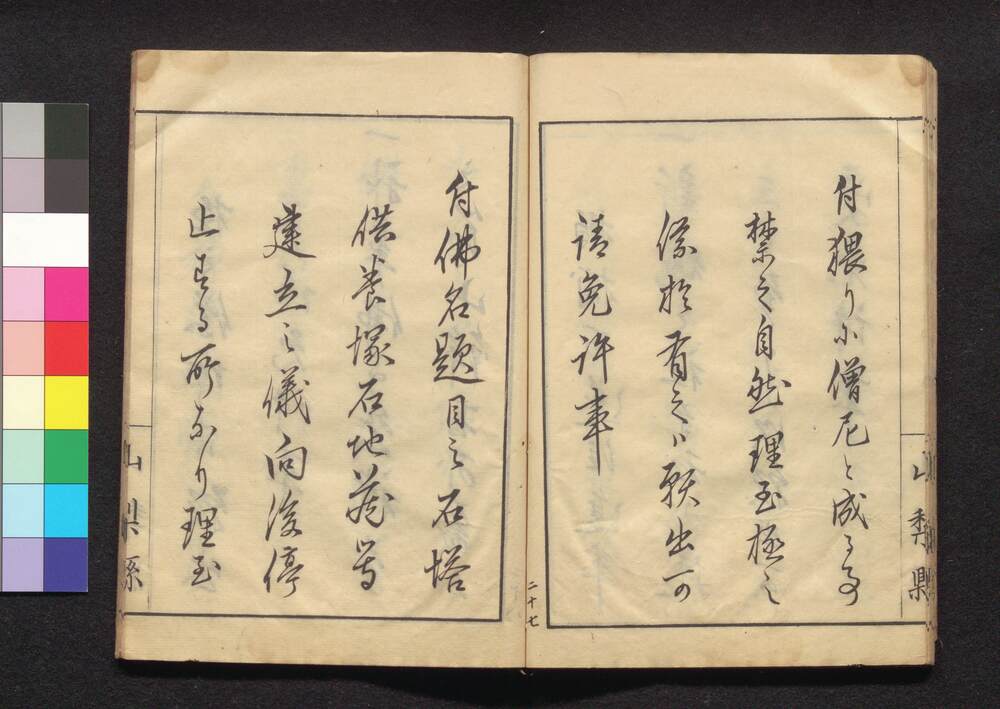 付猥りニ僧尼と成る事
禁之自然理至極之
儀於有之ハ願出可
請免許事
付佛名題目之石塔
供養塚石地蔵等
建立之儀向後停
止する所なり理至
二十七
山梨縣
山梨縣